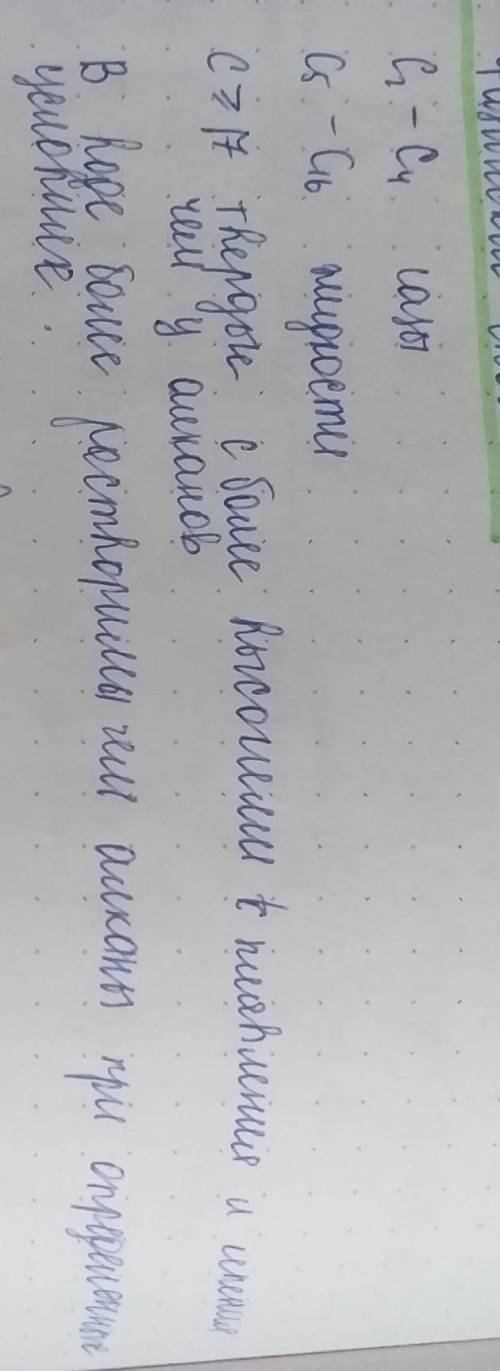 C₁ – C₄ газы
C₅ – C₁₆ жидкости
C ≥ 17 твердые с более высокими t плавления и кипения
чем у алканов
В воде более растворимы чем алканы при определенных
условиях.